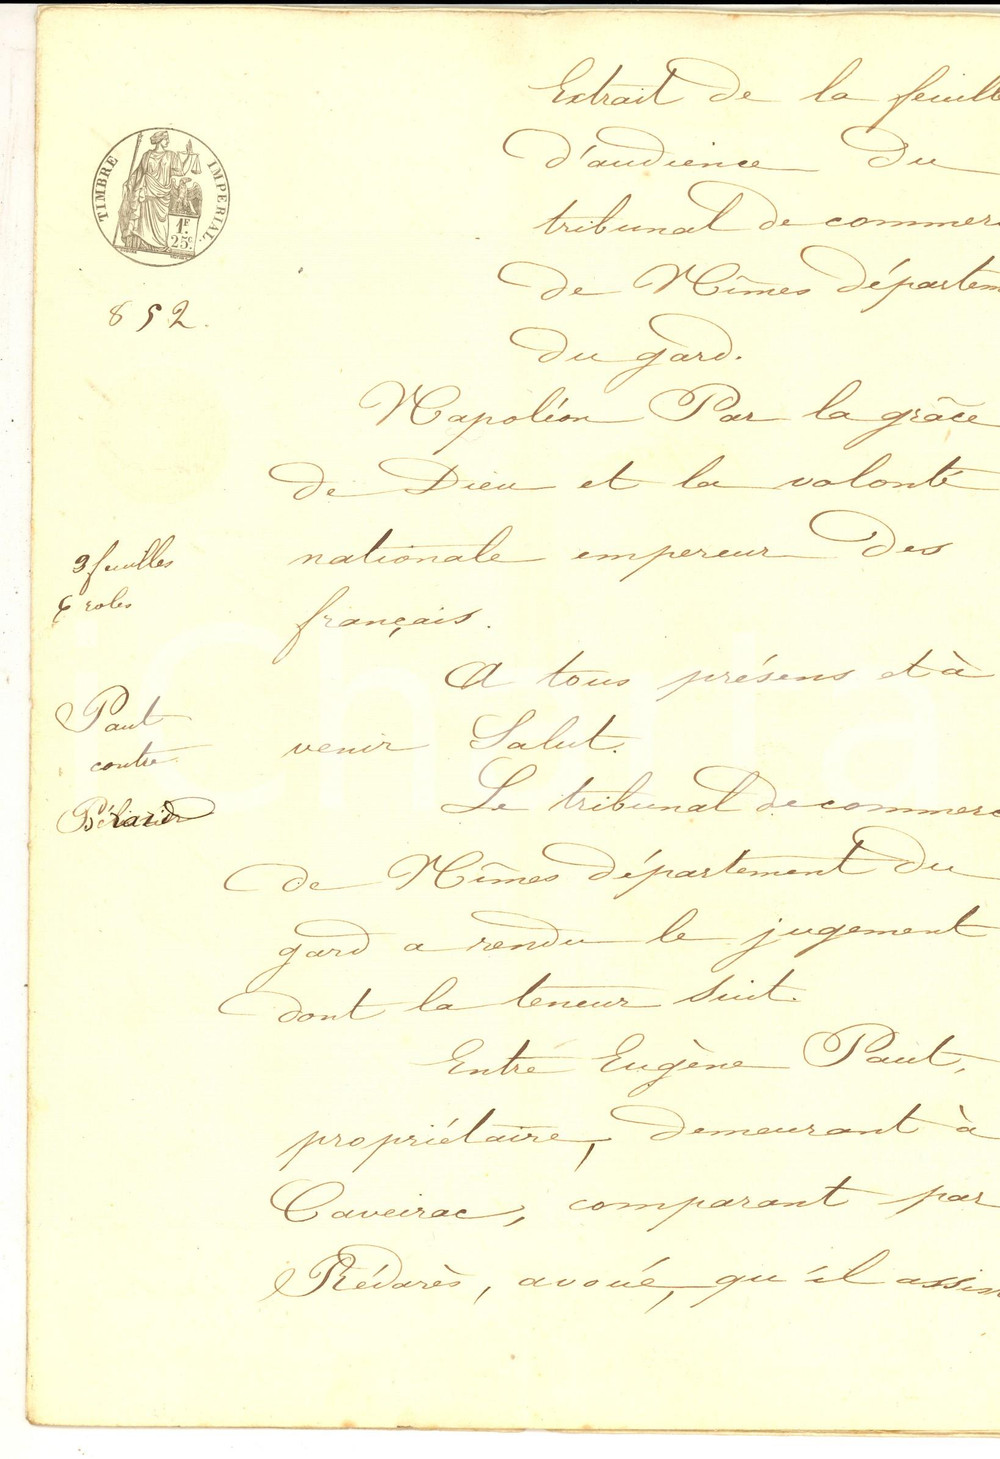 TIMBRE IMPERIAL.
1F.
25c.
852.
3 feuilles
6 roles
Paut
contre
Extrait de la feuill
d'audience du
tribunal de commer
de Nîmes départem
du gard.
Napoléon Par la grâce
de Dieu et la volonté
nationale empereur des
français.
A tous présens et à
venir Salut.
Le tribunal de commerc
de Nîmes département du
gard a rendu le jugement
dont la teneur suit.
Entre Eugène Paut,
propriétaire, demeurant à
Caveirac, comparant par
Rédarès, avoué, qu'il assis